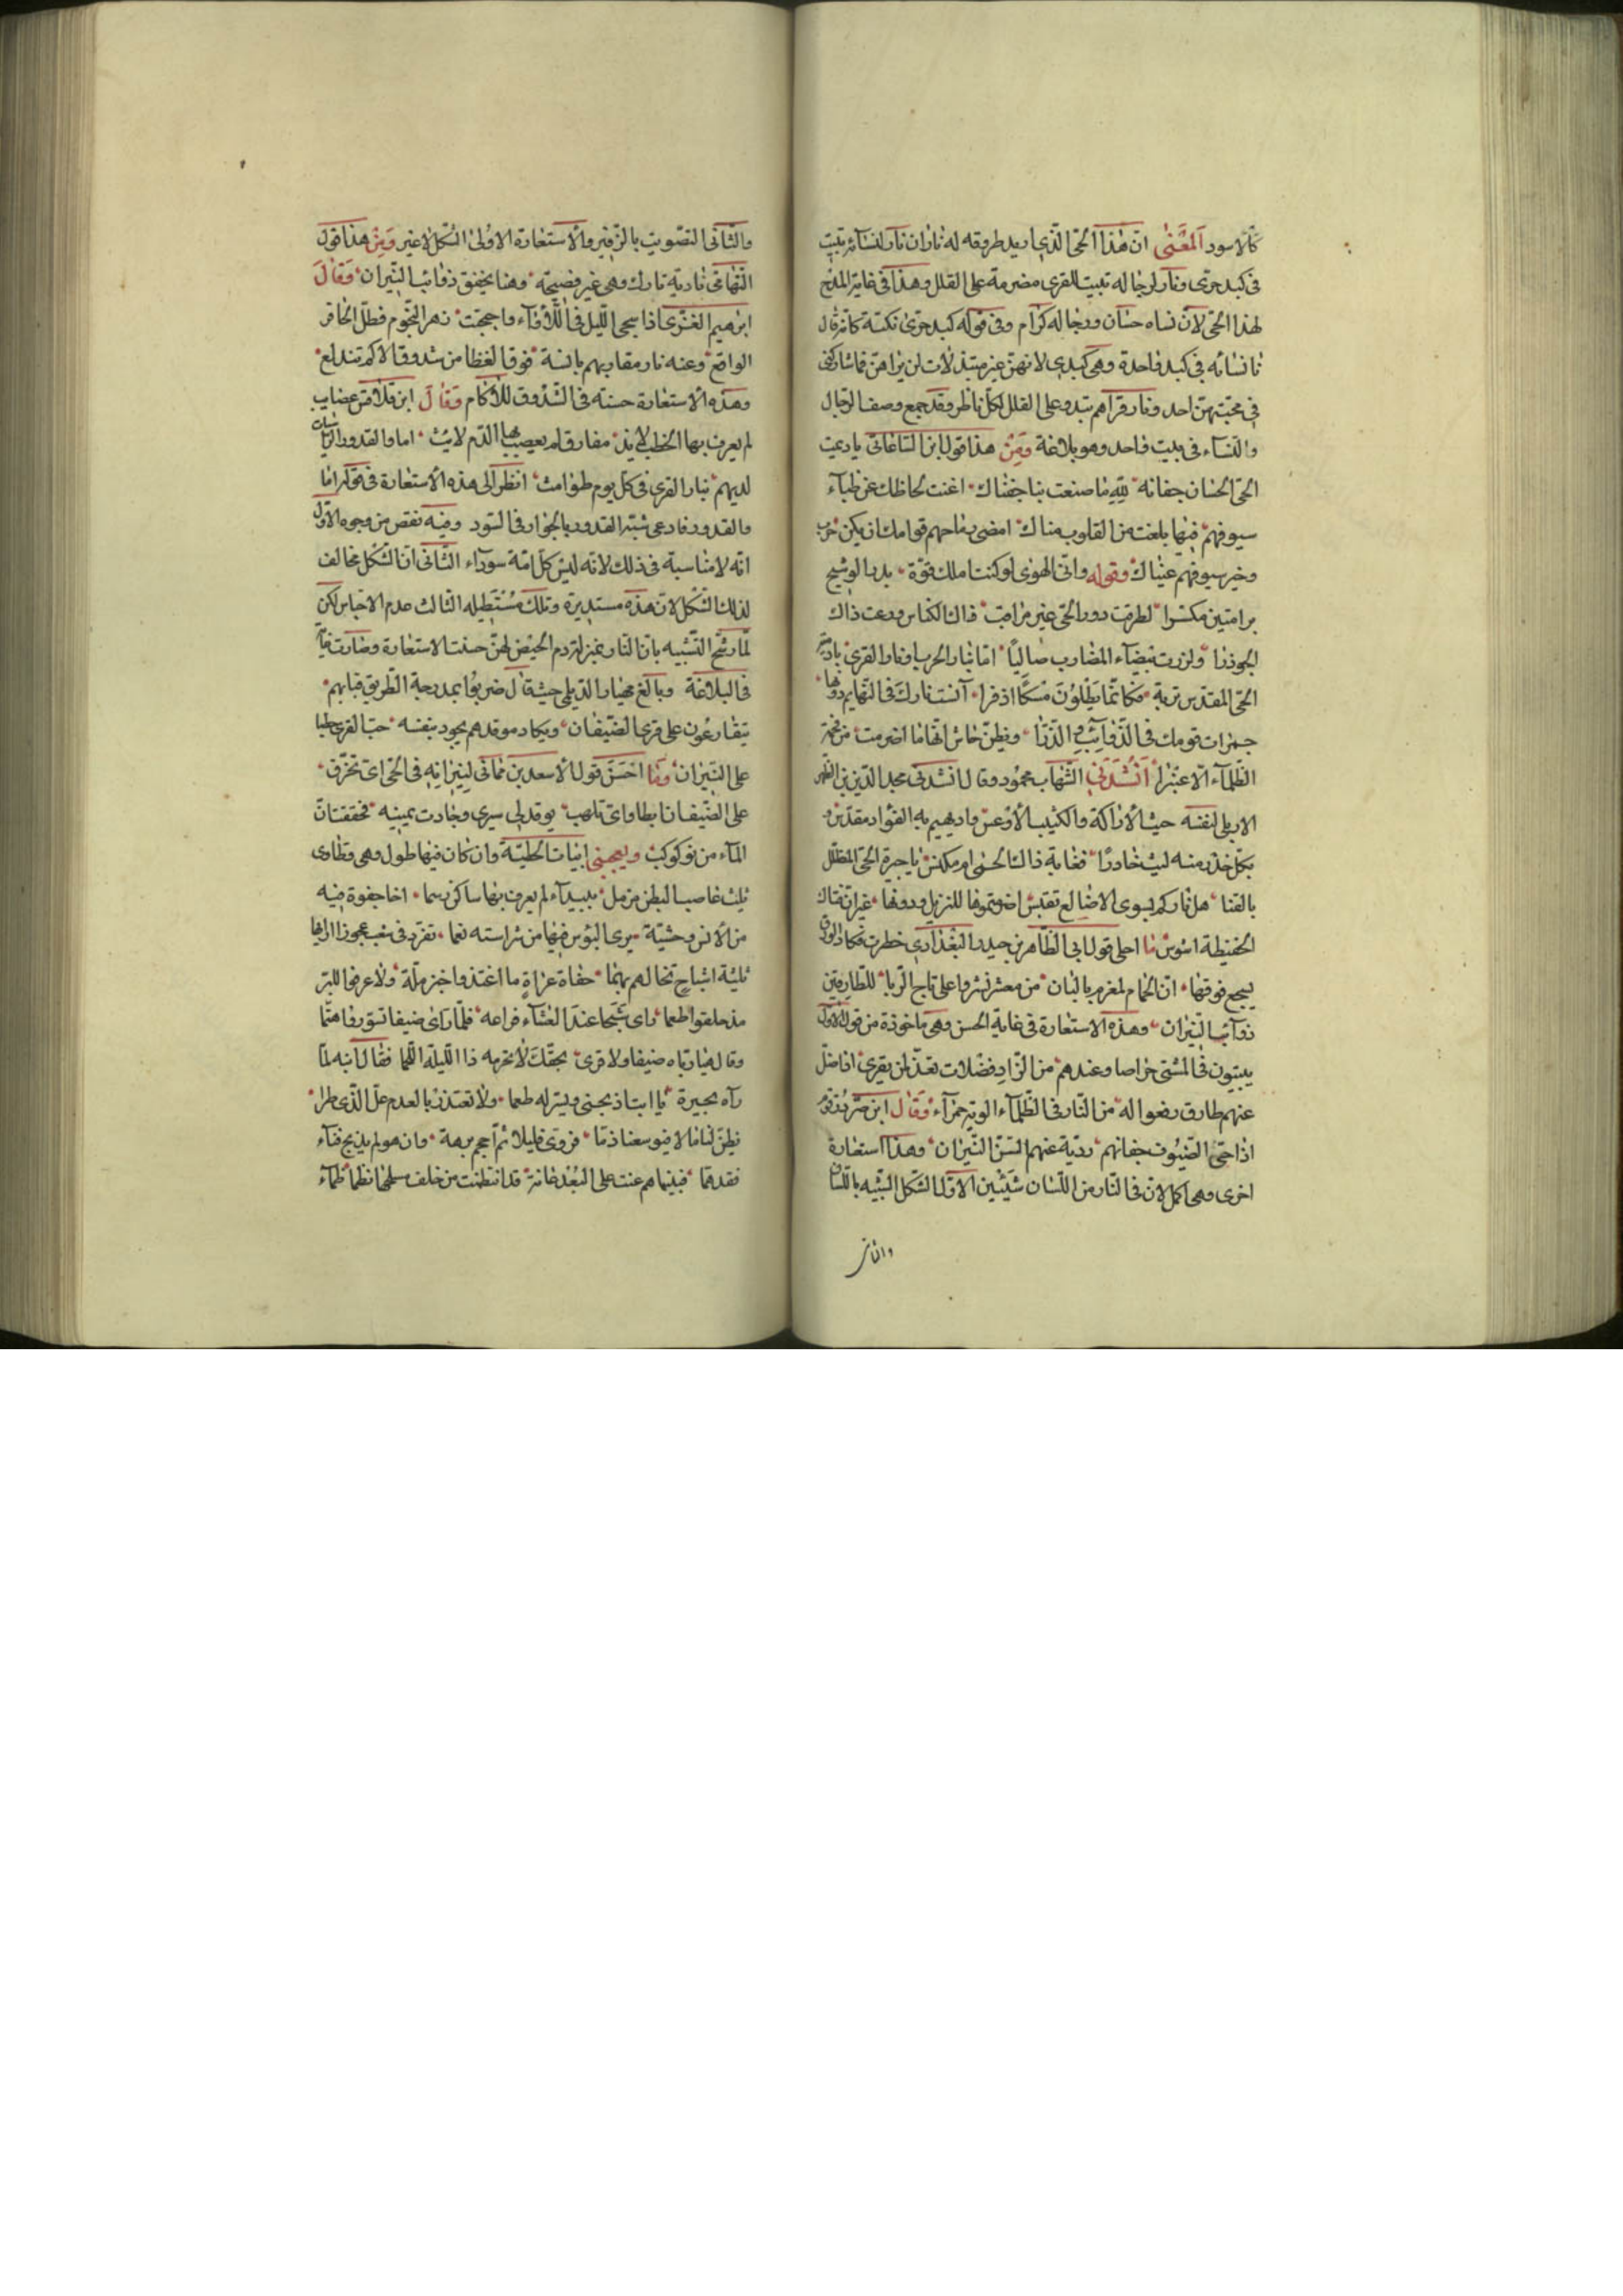 كالاسود المعنى ان هذا الحى الذى اريد طروقه له ناران نار لنسائه تبيت
فى كبد حرى ونار لرجاله تبيت القرى مضرمة على القلل وهذا فى غاية المدح
لهذا الحى لان نساه حسان ورجاله كرام وفى قوله كبد حرى نكتة كانه قال
نار نسائه فى كبد واحدة وهى كبدى لانهن غير مبتذلات لمن يراهن فما شاركنى
فى محبتهن احد ونار قراهم تبدو على القلل لكل ناظر وقد جمع وصف الرجال
والنساء فى بيت واحد وهو بلاغة ومن هذا قول ابن الساعاتى يا دمية
الحى الحسان جفانه لله ما صنعت بنا جفناك اغنت لحاظك عن ظباء
سيوفهم فبها بلغت من القلوب مناك امضى رماحهم قوامك ان يكن حرب
وخير سيوفهم عيناك وقوله وانى الهوى لو كنت املك قوة بدر الوشيج
برامتين مكسرا لطرقت دور الحى غير مراقب ذاك الكناس ورعت ذاك
الجوذرا ولزرت بيضاء المضارب صاليا اما بنار الحرب او نار القرى
الحى المقدس تربه فكانما يطؤن مسكا اذفرا آنست نارك فى التهايم دونها
جمرات قومك فى الذوائب والذرا ويظن خاش انها ما اضرمت من فحمة
الظلماء الا عنبرا انشدنى الشهاب محمود وقال انشدنى مجد الدين بن الظهير
الاربلى لنفسه حيث الاراكة والكثيب الاوعس واد يهيم به الفؤاد مقدس
بكل خدر منه ليث خادر فغابة ذاك الحمى ام مكنس يا جيرة الحى المظلل
بالقنا هل ناركم بسوى الاضالع تقبس اضرمتموها للنزيل ودونها غيران فتاك
الحفيظة اشوس ما احلى قول ابى الطاهر بن حيدر البغدادى خطرت فكاد الورق
يسجع فوقها ان الحمام لمغرم بالبان من معشر نشروا على تاج الربا للطارقين
ذوائب النيران وهذه الاستعارة فى غاية الحسن وهى ماخوذة من قول الاول
يبيتون فى المشتى خماصا وعندهم من الزاد فضلات تعد لمن يقرى اذا ضل
عنهم طارق رفعوا له من النار فى الظلماء الوية حمراء وقال ابن صردر
اذا حى الضيوف جفانهم ردية عنهم السن النيران وهذا استعارة
اخرى وهى اكمل لان فى النار من اللسان شيئين الاول الشكل الشبيه باللسان
والثانى
والثانى التصويت بالزفير والاستعارة الاولى الشكل لا غير ومن هذا قول
التهامى نادية نارك وهى غير فصيحة وهنا يخفق ذوائب النيران وقال
ابرهيم الغزى اذا سجى الليل فى اللأواء واجحفت زهر النجوم فطل الحافر
الواقع وعنه نار مقاريهم بالسنة فوق الغظا من شدوق الاكم تندلع
وهذه الاستعارة حسنة فى الشدوق للاكام وقال ابن قلاقس عصايب
لم يعرف بها الخطب لايذ مفارق لم يعصب بها الدم لايث اما والقدور الراسيات
لديهم بنار القرى فى كل يوم طوامث انظر الى هذه الاستعارة فى قوله اما
والقدور فادعى شبه القدور بالجوار فى السود وفيه نقص من وجوه الاول
انه لا مناسبة فى ذلك لانه ليس كل امة سوداء الثانى ان الشكل مخالف
لذلك الشكل لان هذه مستديرة وتلك مستطيله الثالث عدم الاجناس لكن
لما رشح التشبيه بان النار بمنزلة دم الحيض لهن حسنت الاستعارة وصارت غاية
فى البلاغة وبالغ مهيار الديلمى حيث قال ضربوا بمدرجة الطريق قبابهم
يتقارعون على قرى الضيفان ويكاد موقدهم يجود بنفسه حب القرى حطبا
على النيران وما احسن قول الاسعد بن مماتى لنيرانه فى الحى اى تحرق
على الضيف ان ابطا واى تلهب يوقد لى سيرى وجادت يمينه فحققت ان
الماء من نو كوكب ويعجبنى ابيات الحطيئة وان كان فيها طول وهى وطاوى
ثلث عاصب البطن مزمل ببيداء لم يعرف بها ساكن رسما اخا جفوة فيه
من الانس وحشية يرى البؤس فيها من شراسته نعما تفرد فى شعب عجوزا ازاءها
ثلثة اشباح تخالهم بهما حفاة عراة ما اغتذوا خبز ملة ولا عرفوا للبر
مذ خلقوا طعما راى شبحا عند العشاء فراعه فلما راى ضيفا تسور واهتما
وقال هيا رباه ضيفا ولا قرى بحقك لا تحرمه ذا الليلة اللحما فقال ابنه لما
رآه بحيرة يا ابت اذبحنى ويسر له طعما ولا تعتذر بالعدم عل الذى طرا
يظن لنا مالا فيوسعنا ذما فروى قليلا ثم احجم برهة وان هو لم يذبح فتاه
فقد هما فبيناهم عنت على البعد عانة قد انتظمت من خلف مسحلها نظما ظماء